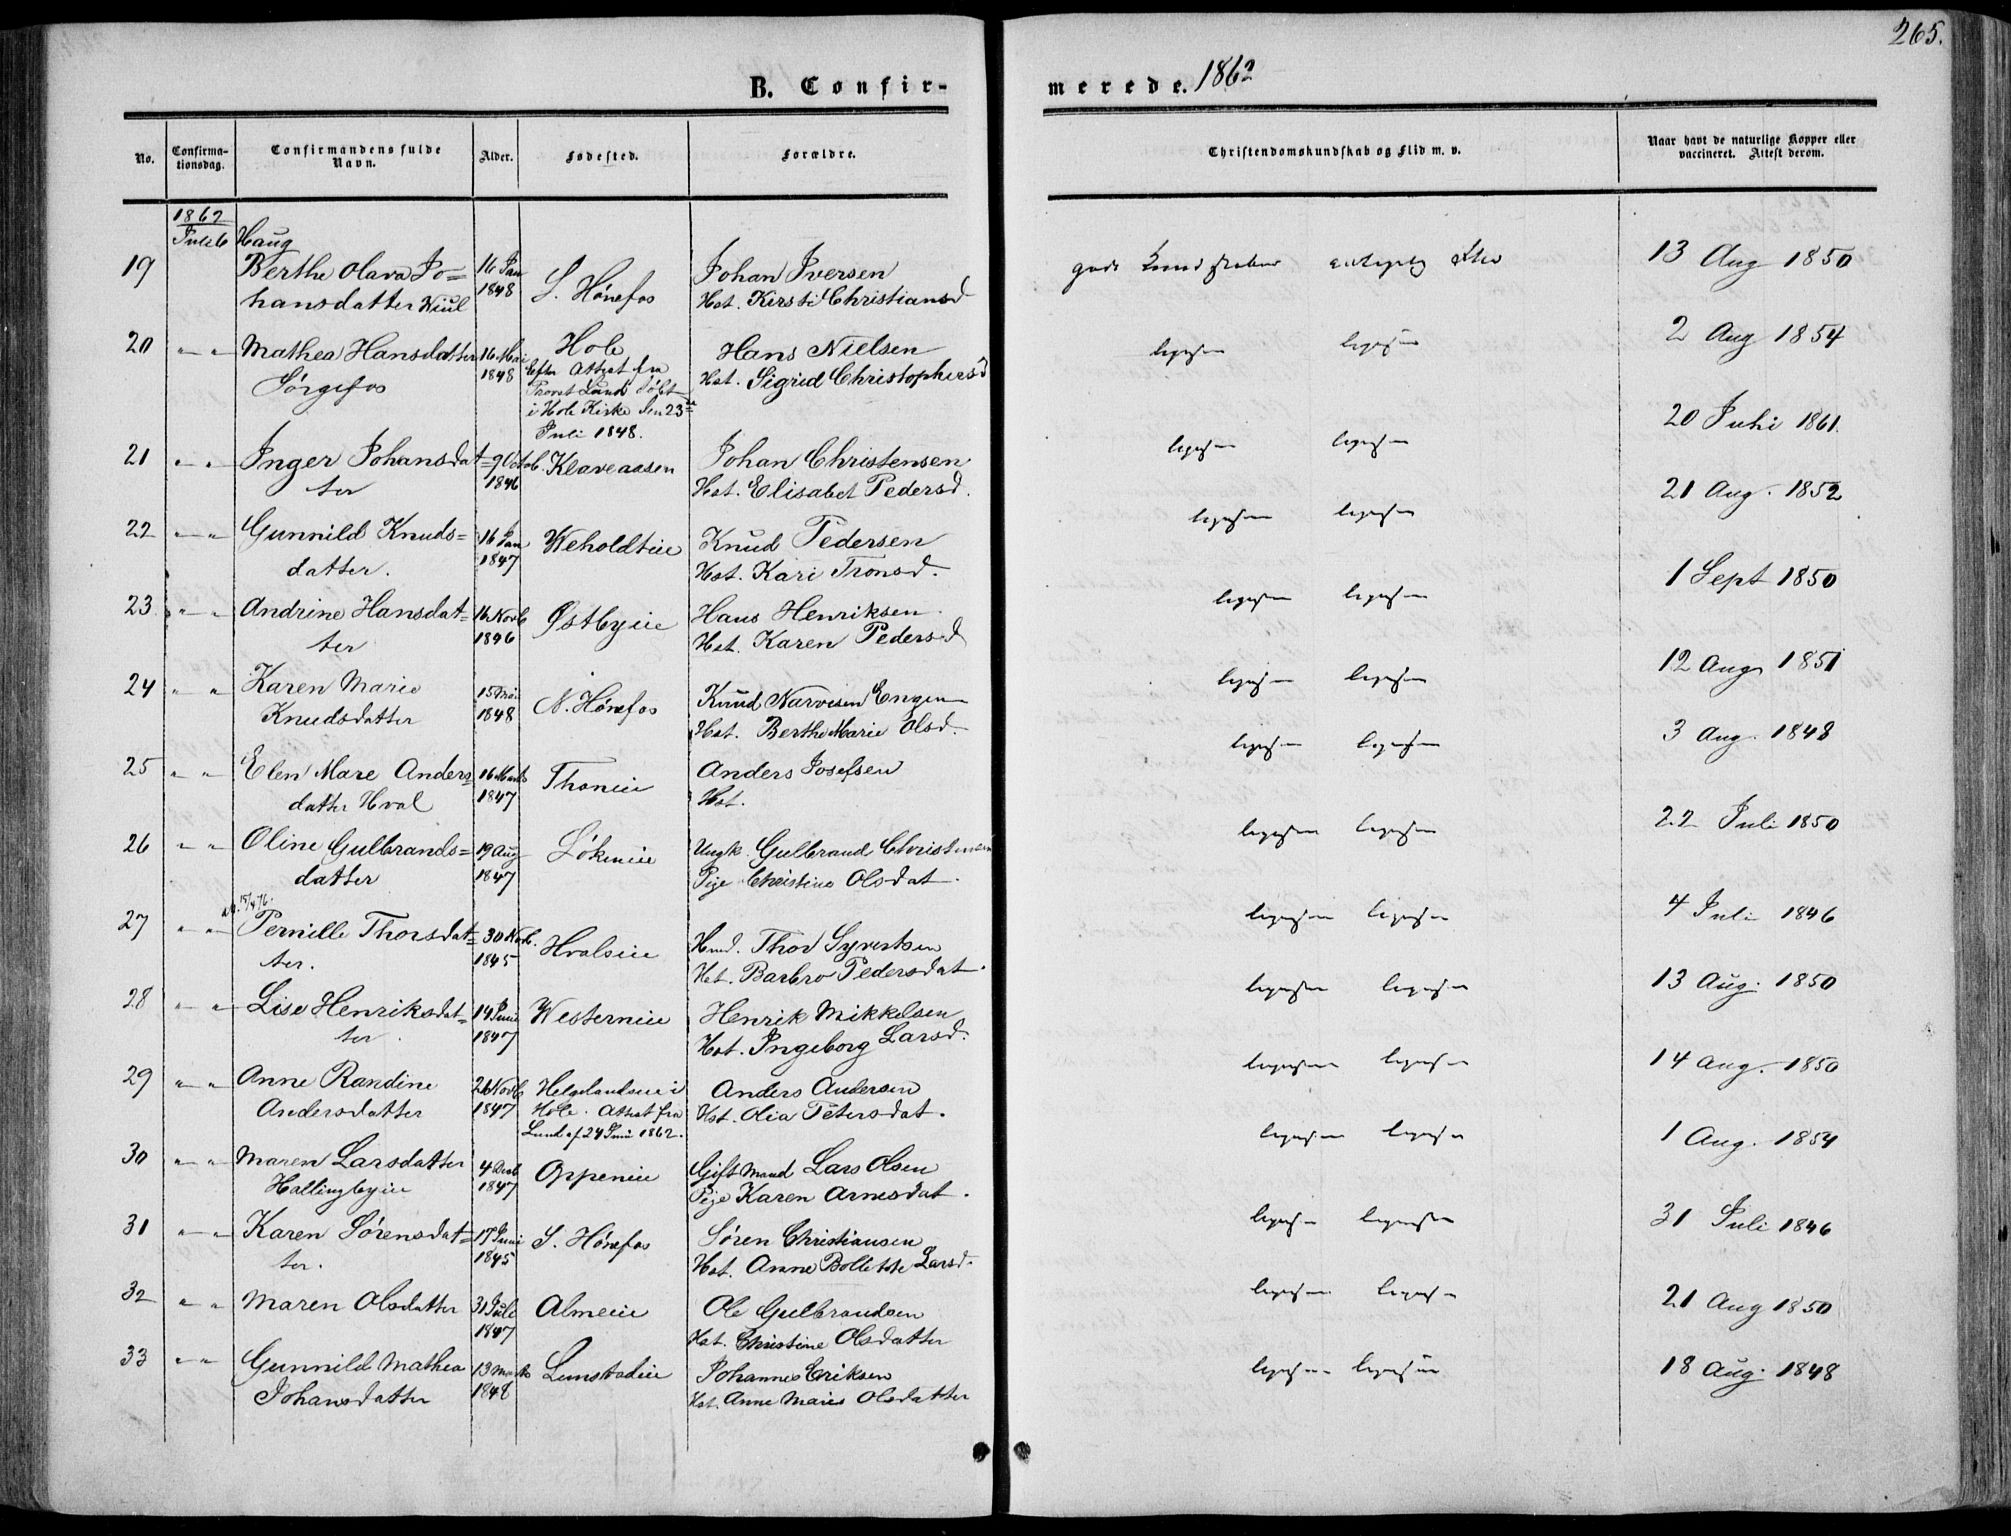 265.
B. Confir-
merede. 1862
No.
Confirma-
tionsdag.
Confirmandens fulde
Navn.
Alder.
Fødested.
Forældre.
Christendomskundskab og Flid m. v.
Naar havt de naturlige Kopper eller
vaccineret. Attest derom.
1862
Juli 6 Haug
19 Berthe Olava Jo=
hansdatter Wiul
16 Jan
1848
S. Hønefos
Johan Iversen
Hst. Kirsti Christiansd
gode Kundskaber
13 Aug 1850
20 " " Mathea Hansdatter
Sørgefos
16 Mai
1848
Hole
Efter Attest fra
Provst Lund døbt
i Hole Kirke den 23de
Juli 1848.
Hans Nielsen
Hst. Sigrid Christophersd
ligesaa ligesaa
2 Aug 1854
21 " " Inger Johansdat=
ter
9 Octob.
1846
Klaveaasen
Johan Christensen
Hst. Elisabet Pedersd.
ligesaa ligesaa
20 Juli 1861.
22 " " Gunnild Knuds=
datter.
16 Jan
1847
Weholdteie
Knud Pedersen
Hst. Kari Tronsd.
ligesaa ligesaa
21 Aug. 1852
23 " " Andrine Hansdat=
ter
16 Novb
1846
Østbyeie
Hans Henriksen
Hst. Karen Pedersd
ligesaa ligesaa
1 Sept 1850
24 " " Karen Marie
Knudsdatter
15 Mai
1848
N. Hønefos
Knud Narvesen Engen
Hst. Berthe Marie Olsd.
ligesaa ligesaa
12 Aug 1851
25 " " Elen Mare Anders=
datter Hval
16 Marts
1847
Thoneie
Anders Josefsen
Hst.
ligesaa ligesaa
3 Aug. 1848
26 " " Oline Gulbrands=
datter
19 Aug
1847
Løkeneie
Ungk. Gulbrand Christensen
Pige Christine Olsdat.
ligesaa ligesaa
22 Juli 1850
27 " " Pernille Thorsdat=
ter.
30 Nob.
1845
Hvalseie
Hmd. Thor Syvertsen
Hst. Barbro Pedersdat.
ligesaa ligesaa
4 Juli 1846
28 " " Lise Henriksdat=
ter.
14 Juni
1847
Westerneie
Henrik Mikkelsen
Hst. Ingeborg Larsd.
ligesaa ligesaa
13 Aug. 1850
29 " " Anne Randine
Andersdatter
26 Novb
1847
Helgelandseie i
Hole. Attest fra
Lund af 24 Juni 1862.
Anders Andersen
Hst. Olia Petersdat.
ligesaa ligesaa
14 Aug. 1850
30 " " Maren Larsdatter
Hallingbyeie
4 Decb
1847
Oppeneie
Gift Mand Lars Olsen
Pige Karen Arnesdat.
ligesaa ligesaa
1 Aug. 1854
31 " " Karen Sørensdat=
ter.
17 Juni
1845
S. Hønefos
Søren Christiansen
Hst. Anne Bollette Larsd.
ligesaa ligesaa
31 Juli 1846
32 " " Maren Olsdatter
31 Juli
1847
Almeie
Ole Gulbrandsen
Hst. Christine Olsdatter
ligesaa ligesaa
21 Aug 1850
33 " " Gunnild Mathea
Johansdatter
13 Marts
1848
Lunstadeie
Johannes Eriksen
Hst. Anne Maries Olsdatter
ligesaa ligesaa
18 Aug. 1848